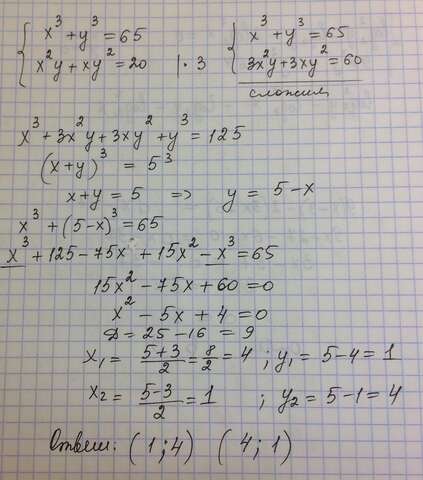 { x³ + y³ = 65
{ x²y + xy² = 20 | · 3
{ x³ + y³ = 65
{ 3x²y + 3xy² = 60
сложим
x³ + 3x²y + 3xy² + y³ = 125
(x+y)³ = 5³
x + y = 5 => y = 5 - x
x³ + (5-x)³ = 65
x³ + 125 - 75x + 15x² - x³ = 65
15x² - 75x + 60 = 0
x² - 5x + 4 = 0
D = 25 - 16 = 9
x₁ = (5+3)/2 = 8/2 = 4 ; y₁ = 5 - 4 = 1
x₂ = (5-3)/2 = 1 ; y₂ = 5 - 1 = 4
Ответ: (1; 4) (4; 1)